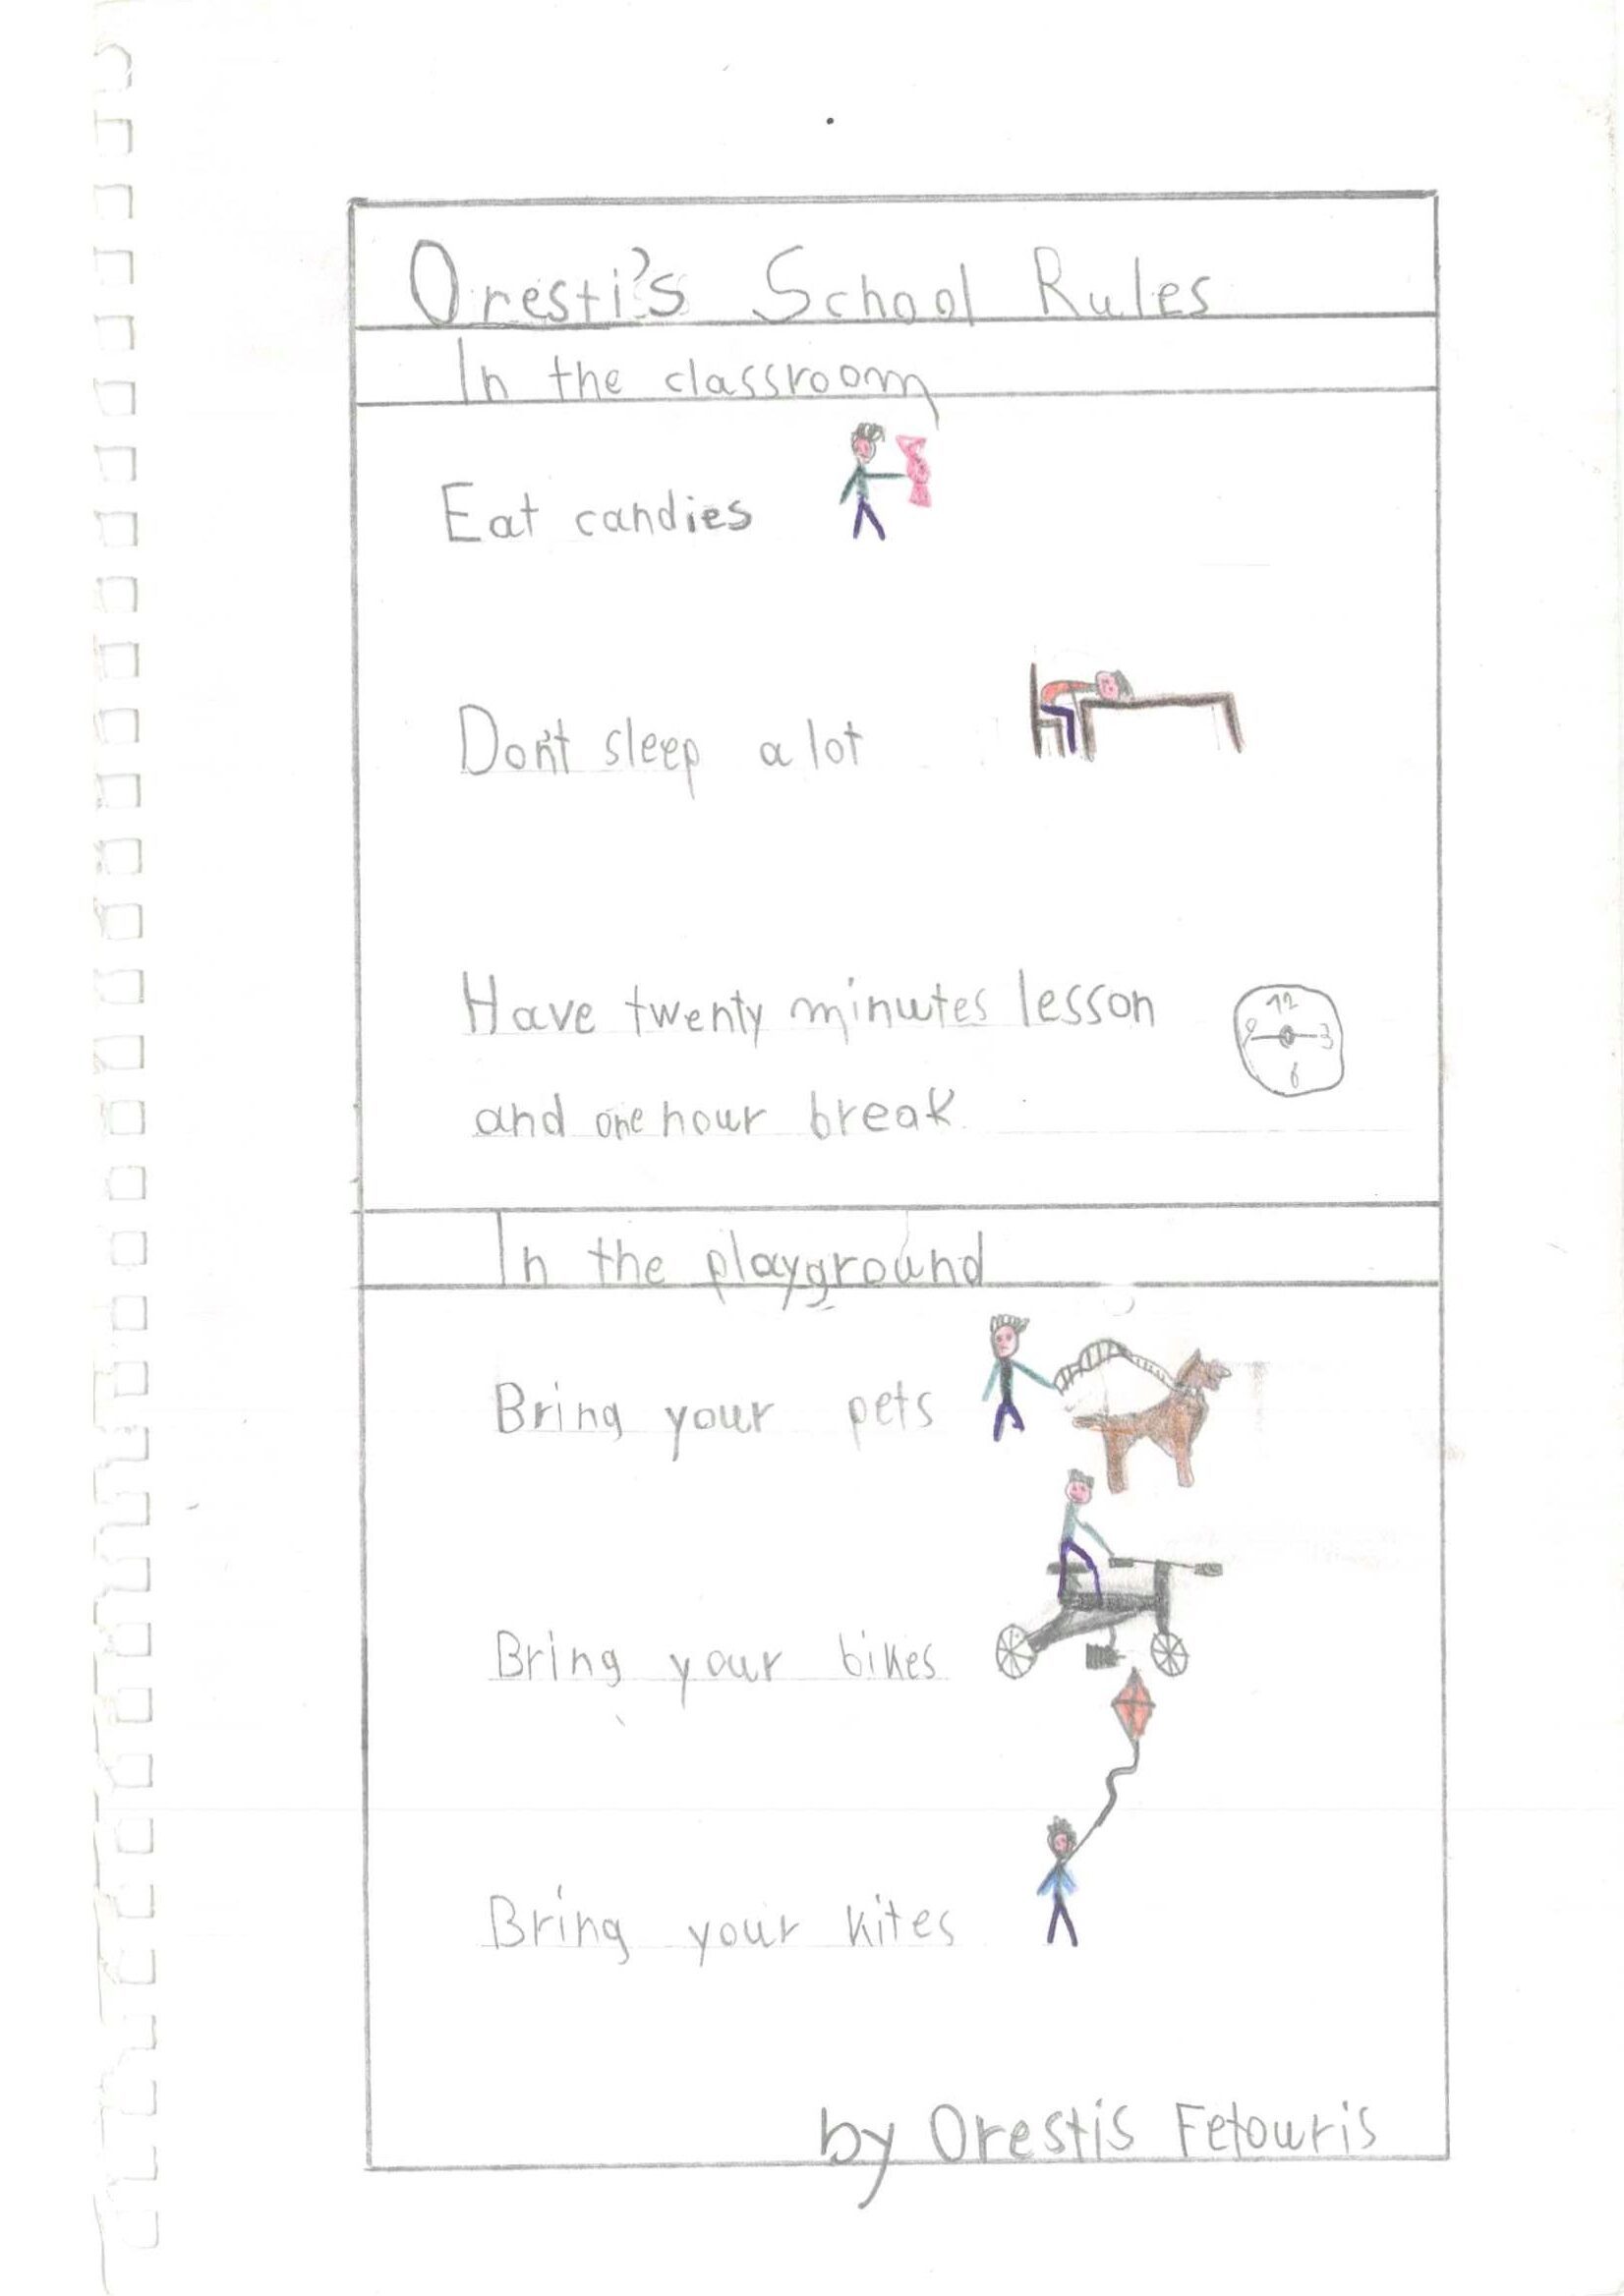 Oresti's School Rules
In the classroom
Eat candies
Don't sleep a lot
Have twenty minutes lesson
12
9 3
6
and one hour break
In the playground
Bring your pets
Bring your bikes
Bring your kites
by Orestis Fetouris